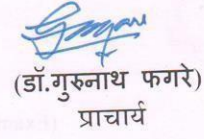 (डॉ.गुरुनाथ फगरे)
प्राचार्य